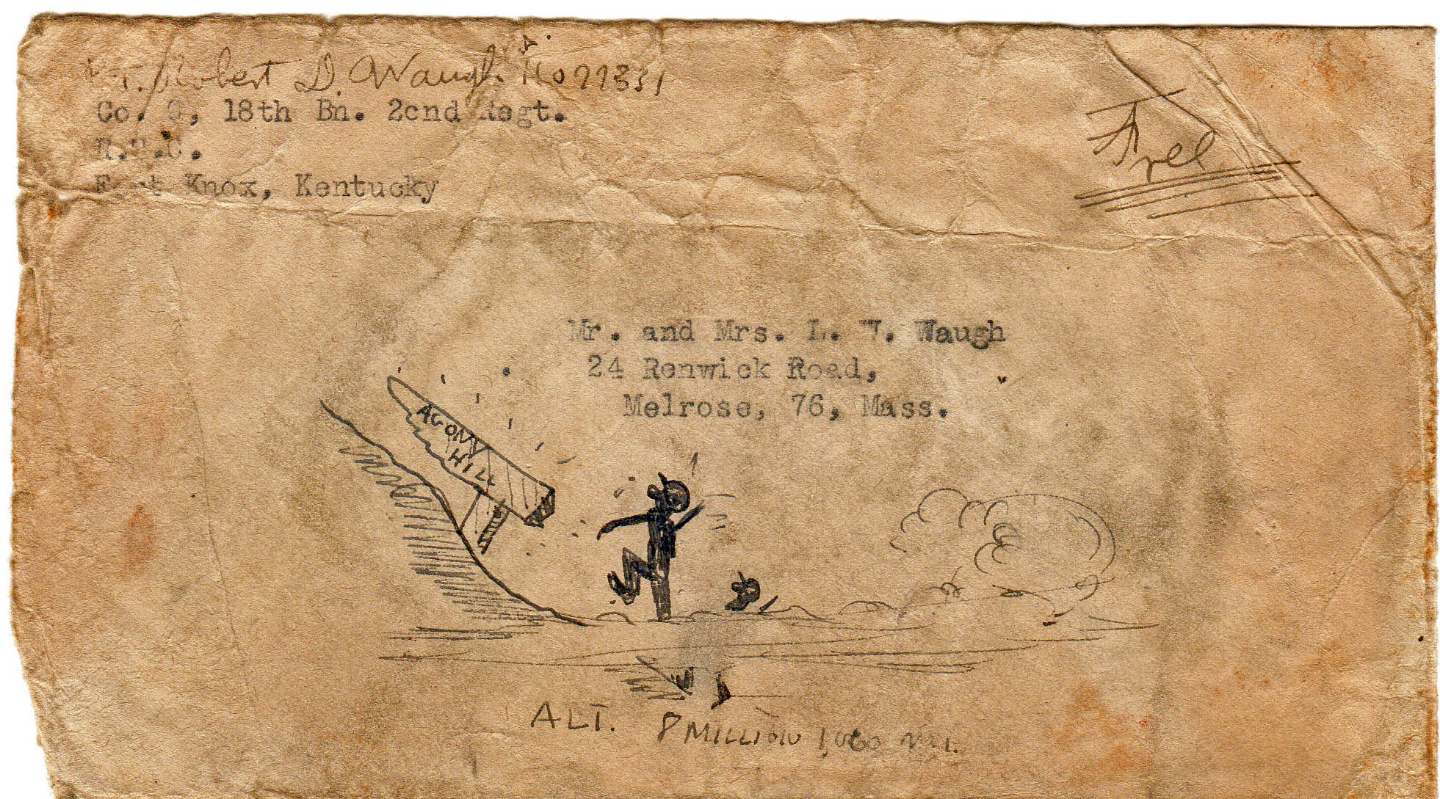 Robert D. Waugh
Co. 18th Bn. 2cnd Regt.
Knox, Kentucky
Free
Mr. and Mrs. L. W. Waugh
24 Renwick Road,
Melrose, 76, Mass.
AGONY
HILL
ALT. 8 MILLION